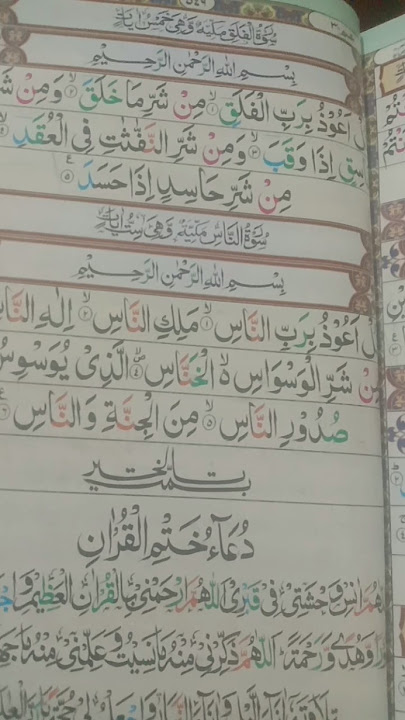 سُوْرَةُ الْفَلَقِ مَكِّيَّةٌ وَّهِيَ خَمْسُ اٰيَاتٍ
بِسْمِ اللّٰهِ الرَّحْمٰنِ الرَّحِيْمِ
اَعُوْذُ بِرَبِّ الْفَلَقِ ۙ﴿۱﴾ مِنْ شَرِّ مَا خَلَقَ ۙ﴿۲﴾ وَمِنْ
اِذَا وَقَبَ ۙ﴿۳﴾ وَمِنْ شَرِّ النَّفّٰثٰتِ فِي الْعُقَدِ
مِنْ شَرِّ حَاسِدٍ اِذَا حَسَدَ ﴿۵﴾
سُوْرَةُ النَّاسِ مَكِّيَّةٌ وَّهِيَ سِتُّ اٰيَاتٍ
بِسْمِ اللّٰهِ الرَّحْمٰنِ الرَّحِيْمِ
اَعُوْذُ بِرَبِّ النَّاسِ ۙ﴿۱﴾ مَلِكِ النَّاسِ ۙ﴿۲﴾ اِلٰهِ
شَرِّ الْوَسْوَاسِ ۙ۬ الْخَنَّاسِ ﴿۴﴾ الَّذِيْ يُوَسْوِسُ
صُدُوْرِ النَّاسِ ۙ﴿۵﴾ مِنَ الْجِنَّةِ وَ النَّاسِ
تمت بالخير
دُعَاءُ خَتْمِ الْقُرْاٰنِ
اٰنِسْ وَحْشَتِيْ فِيْ قَبْرِيْ اَللّٰهُمَّ ارْحَمْنِيْ بِالْقُرْاٰنِ الْعَظِيْمِ
وَّهُدًى وَّرَحْمَةً اَللّٰهُمَّ ذَكِّرْنِيْ مِنْهُ مَا نَسِيْتُ وَعَلِّمْنِيْ مِنْهُ مَا